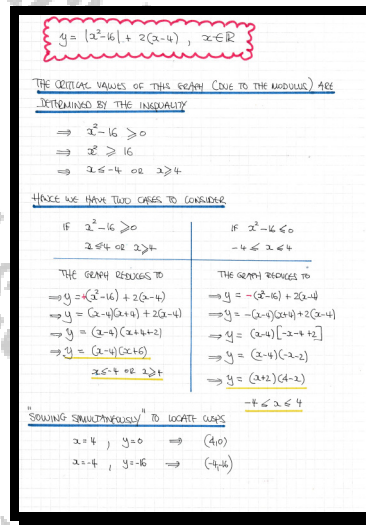 y = |x²-16| + 2(x-4) , x∈ℝ
THE CRITICAL VALUES OF THIS GRAPH (DUE TO THE MODULUS) ARE
DETERMINED BY THE INEQUALITY
⇒ x²-16 ≥ 0
⇒ x² ≥ 16
⇒ x ≤ -4 OR x ≥ 4
HENCE WE HAVE TWO CASES TO CONSIDER
IF x²-16 ≥ 0
x ≤ -4 OR x ≥ 4
THE GRAPH REDUCES TO
⇒ y = +(x²-16) + 2(x-4)
⇒ y = (x-4)(x+4) + 2(x-4)
⇒ y = (x-4)(x+4+2)
⇒ y = (x-4)(x+6)
x ≤ -4 OR x ≥ 4
IF x²-16 ≤ 0
-4 ≤ x ≤ 4
THE GRAPH REDUCES TO
⇒ y = -(x²-16) + 2(x-4)
⇒ y = -(x-4)(x+4) + 2(x-4)
⇒ y = (x-4)[-x-4+2]
⇒ y = (x-4)(-x-2)
⇒ y = (x+2)(4-x)
-4 ≤ x ≤ 4
"SOLVING SIMULTANEOUSLY" TO LOCATE CUSPS
x=4 , y=0 ⇒ (4,0)
x=-4 , y=-16 ⇒ (-4,-16)